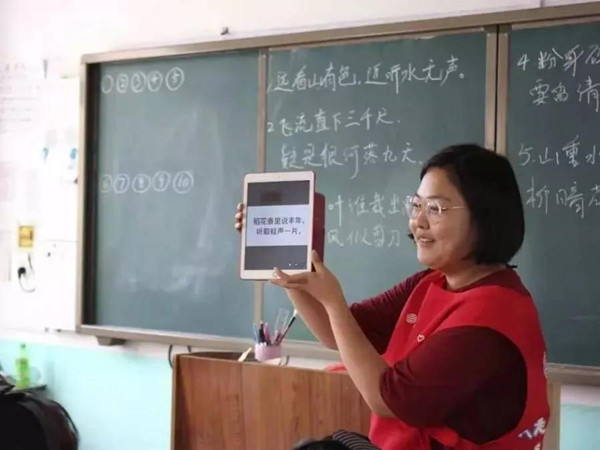 ① ② ③ ④ ⑤
⑥ ⑦ ⑧ ⑨ ⑩
1.远看山有色,近听水无声。
2.飞流直下三千尺,
疑是银河落九天。
叶谁裁出
风似剪刀
4.粉身
要留清
5.山重水
柳暗花
稻花香里说丰年,
听取蛙声一片。